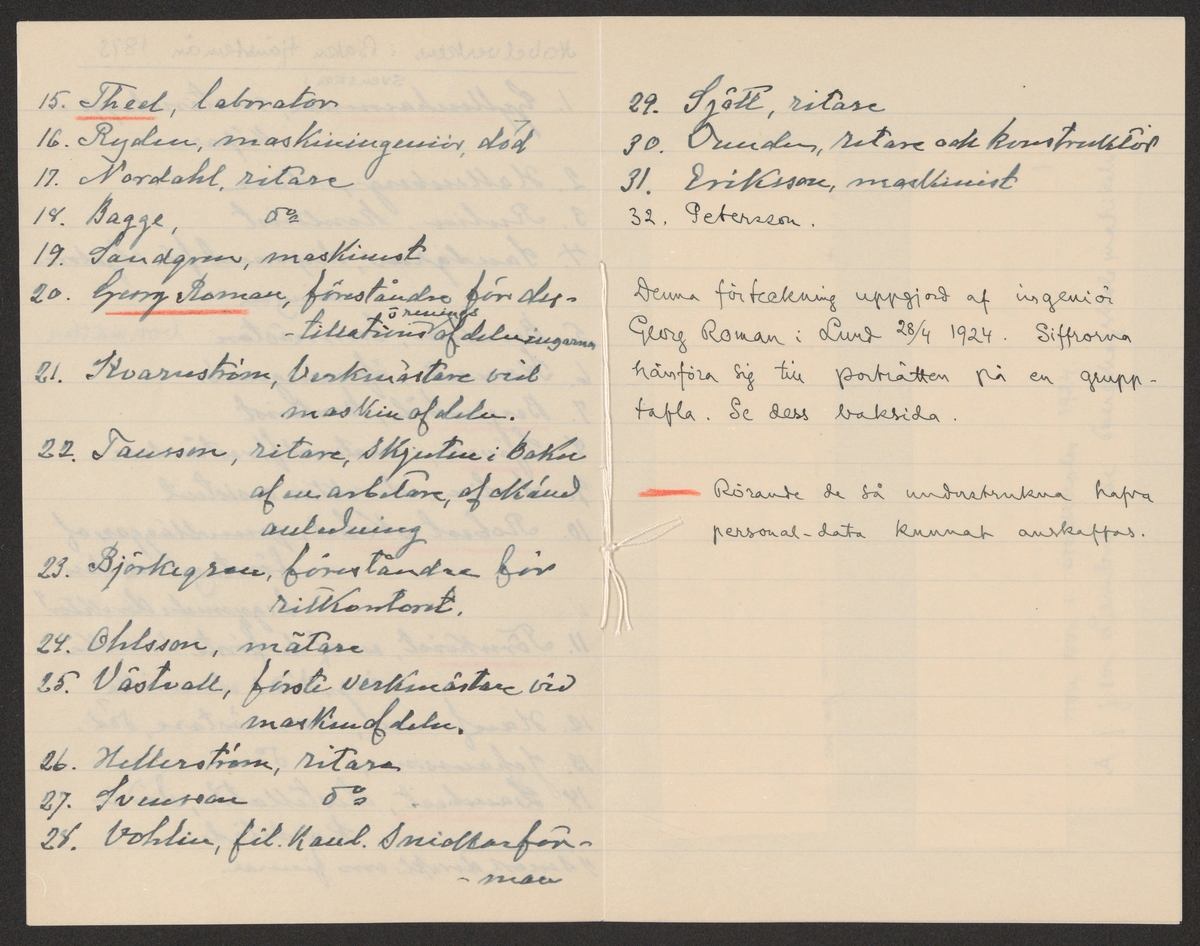 15. Theel, laborator
16. Ryden, maskiningeniör, död
17. Nordahl, ritare
18. Bagge, d:o
19. Sandgren, maskinist
20. Georg Roman, föreståndre för des-
-tillations o renings afdelningarna
21. Kvarnström, Verkmästare vid
maskinafdeln.
22. Jansson, ritare, skjuten i Baku
af en arbetare, af okänd
anledning
23. Björkegren, föreståndre för
ritkontoret.
24. Ohlsson, mätare
25. Västvall, förste verkmästare vid
maskinafdeln.
26. Hellerström, ritare
27. Svensson d:o
28. Vohlin, fil. kand. Snickarför-
-man
29. Sjött, ritare
30. ritare och konstruktör
31. Eriksson, maskinist
32. Petersson.
Denna förteckning uppgjord af ingeniör
Georg Roman i Lund 28/4 1924. Siffrorna
hänföra sig till porträtten på en grupp-
tafla. Se dess baksida.
Rörande de så understrukna hafva
personal-data kunnat anskaffas.